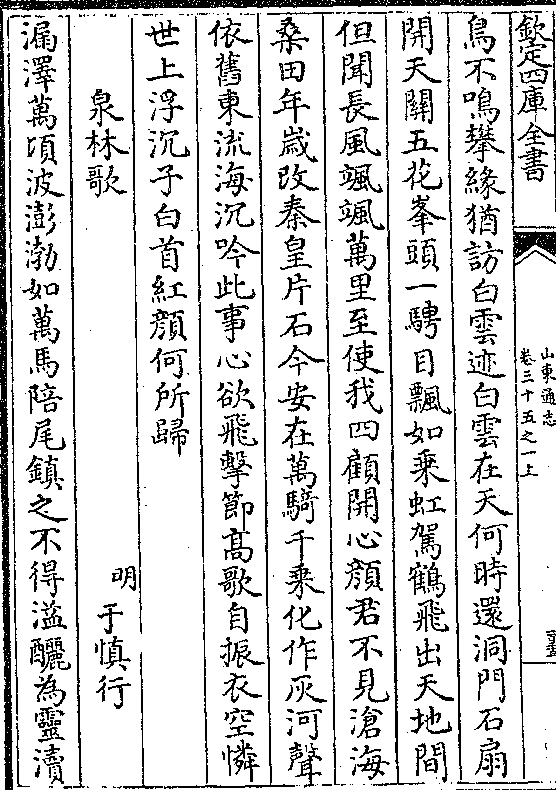 欽定四庫全書
山東通志
卷三十五之一上
鳥不鳴攀緣猶訪白雲迹白雲在天何時還洞門石扇
開天關五花峯頭一騁目飄如乗虹駕鶴飛出天地間
但聞長風颯颯萬里至使我四顧開心顏君不見滄海
桑田年嵗改秦皇片石今安在萬騎千乗化作灰河聲
依舊東流海沉吟此事心欲飛擊節髙歌自振衣空憐
世上浮沉子白首紅顏何所歸
泉林歌
明 于慎行
漏澤萬頃波澎渤如萬馬陪尾鎮之不得溢釃為靈瀆